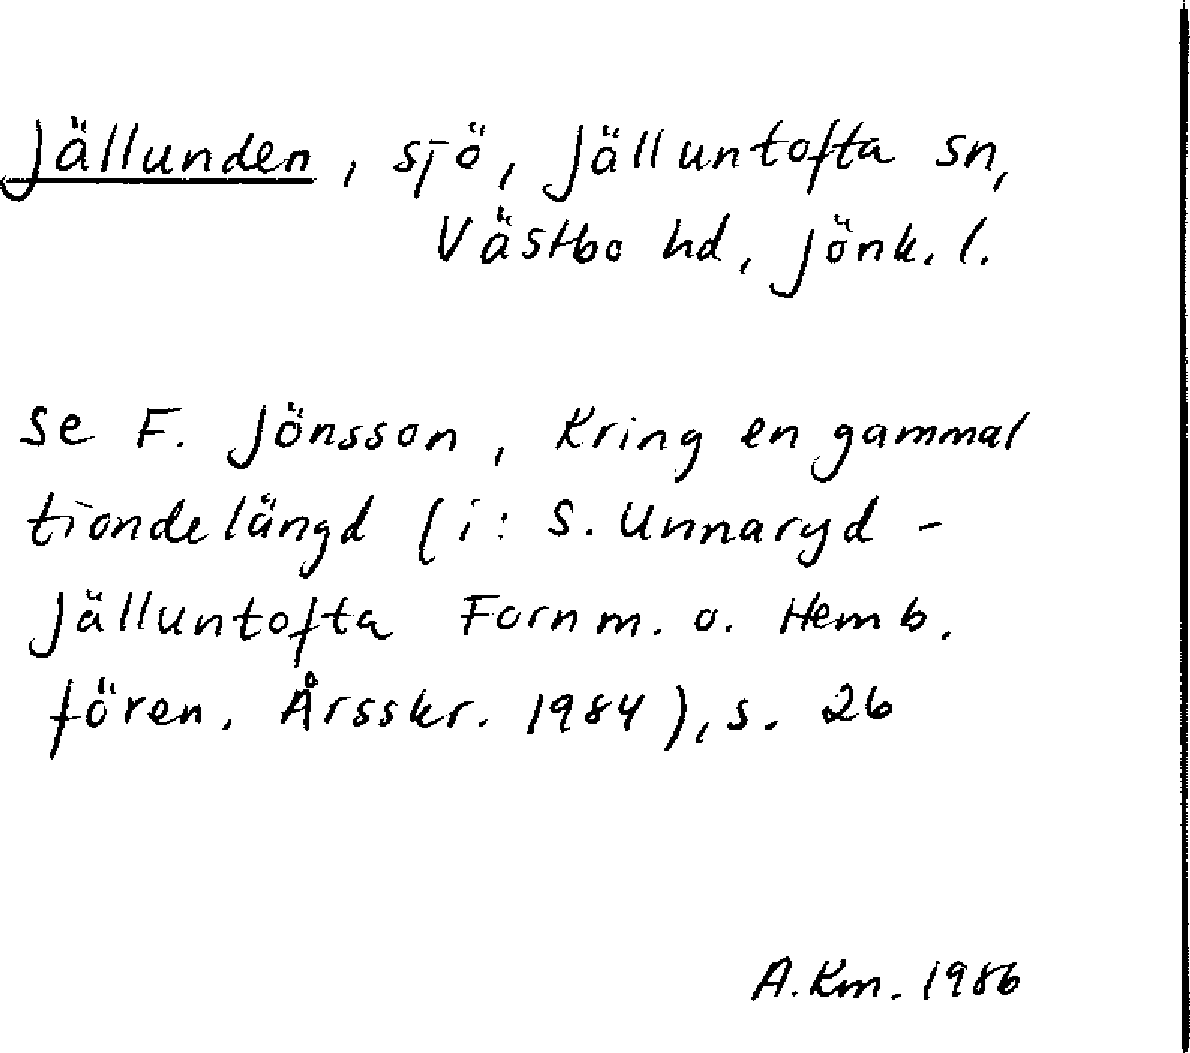 Jällunden, sjö, Jälluntofta sn,
Västbo hd, Jönk. l.
Se F. Jönsson, Kring en gammal
tiondelängd (i: S. Unnaryd -
Jälluntofta Fornm. o. Hemb.
fören. Årsskr. 1984), s. 26
A. Km. 1986